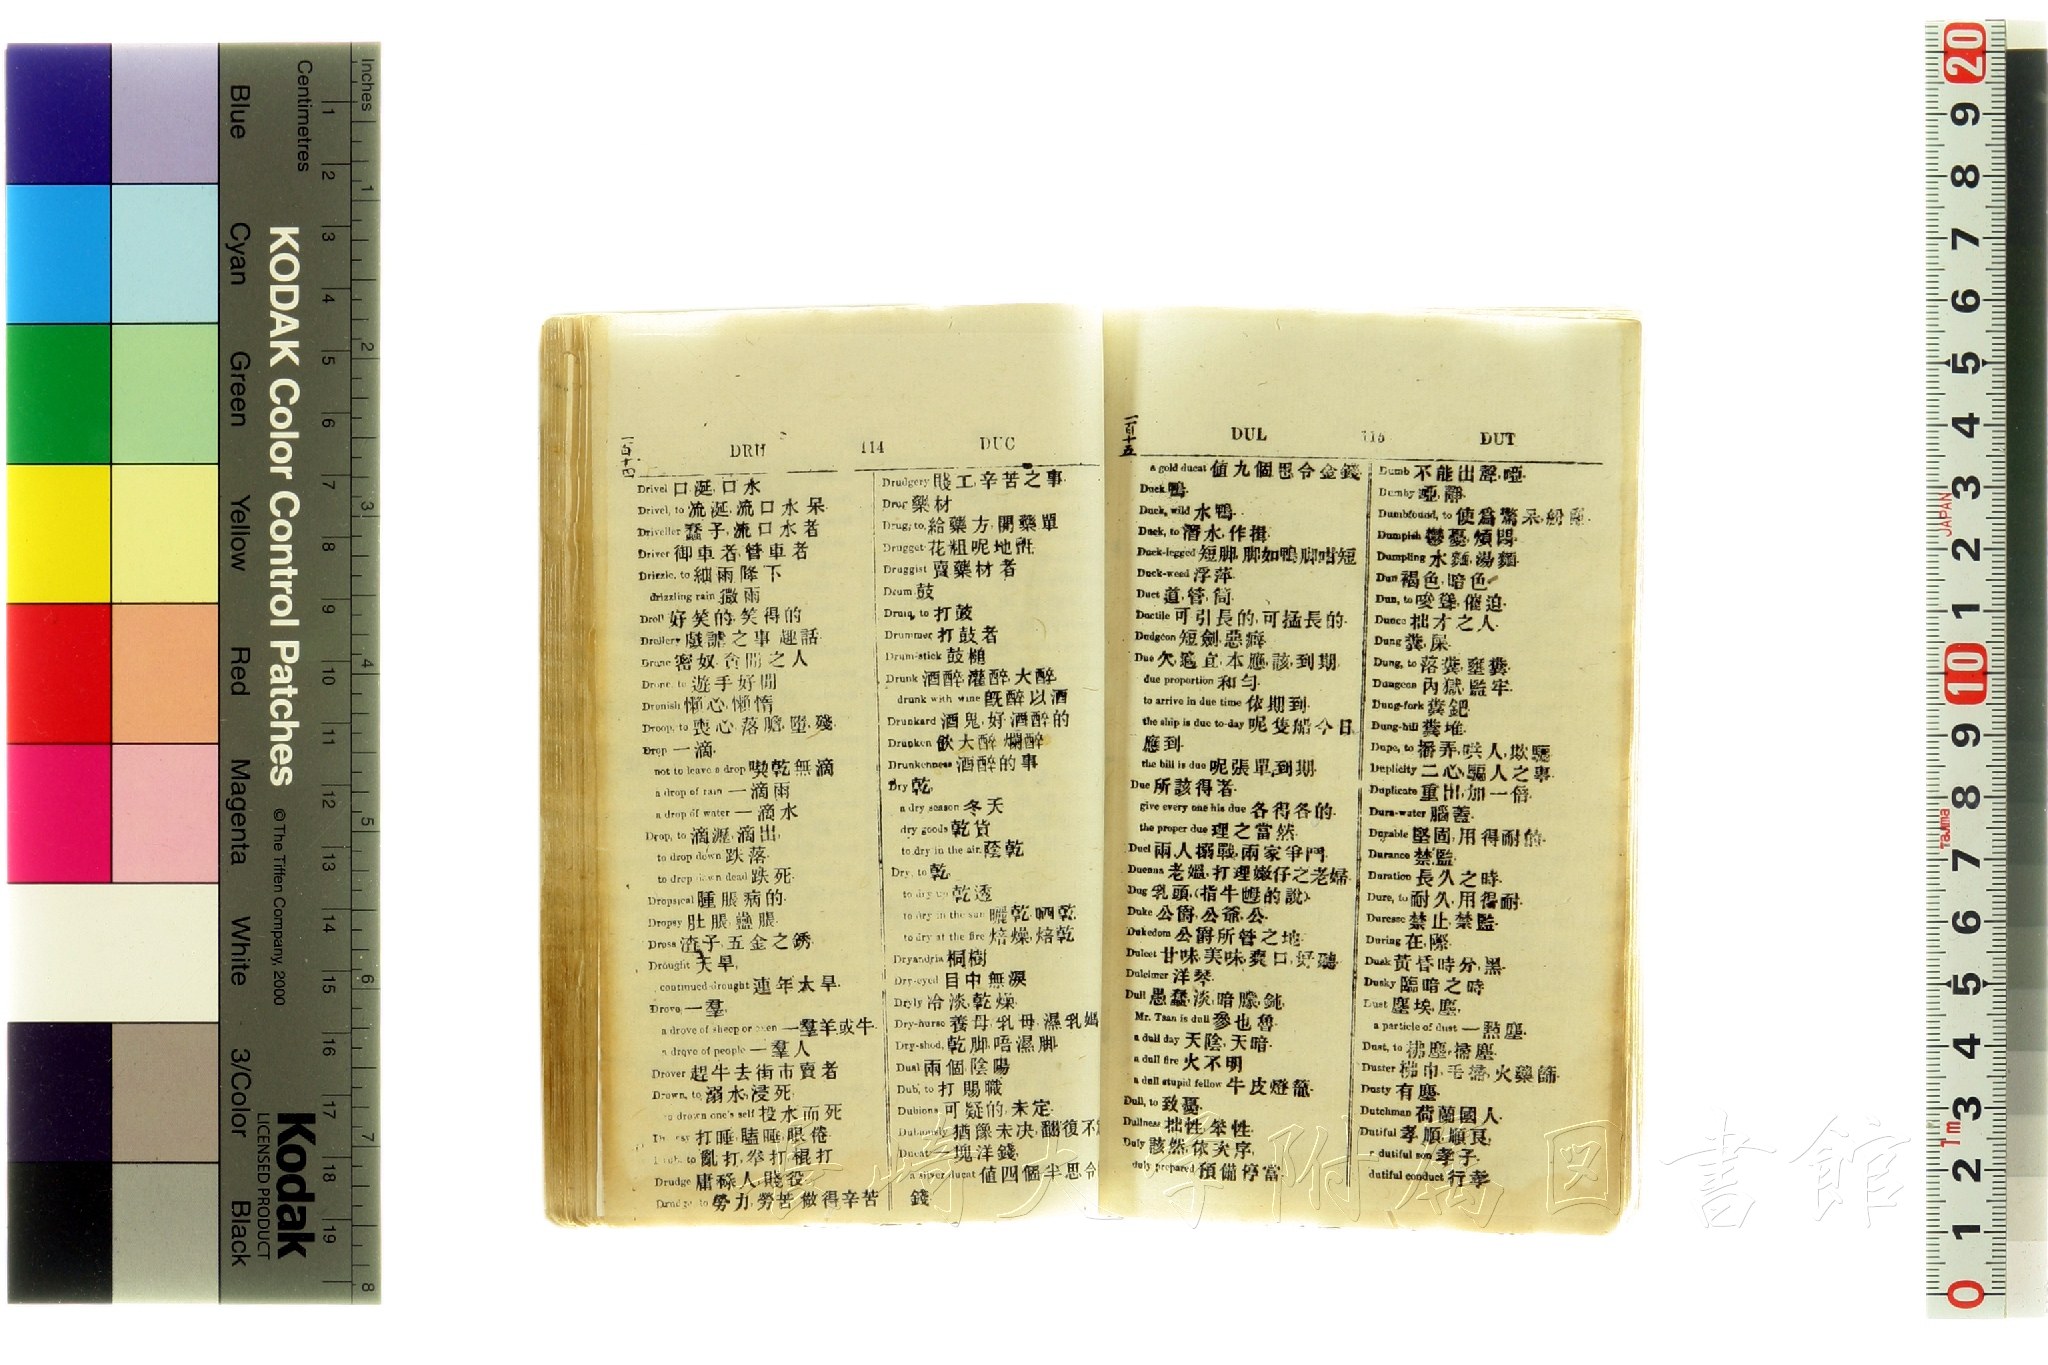 Inches
Centimetres
Blue Cyan Green Yellow Red Magenta White 3/Color Black
KODAK Color Control Patches
© The Tiffen Company, 2000
Kodak
LICENSED PRODUCT
一百十四
DRU 114 DUC
Drivel 口涎,口水
Drivel, to 流涎,流口水,呆
Driveller 蠢子,流口水者
Driver 御車者,管車者
Drizzle, to 細雨降下
drizzling rain 撒雨
Droll 好笑的,笑得的
Drollery 戲謔之事,趣話
Drone 密奴,貪閒之人
Drone, to 遊手好閒
Dronish 懶心,懶惰
Droop, to 喪心,落膽,墮,殘
Drop 一滴
not to leave a drop 喫乾無滴
a drop of rain 一滴雨
a drop of water 一滴水
Drop, to 滴瀝,滴出
to drop down 跌落
to drop down dead 跌死
Dropsical 腫脹病的
Dropsy 肚脹,蠱脹
Dross 渣子,五金之銹
Drought 天旱
continued drought 連年太旱
Drove 一羣
a drove of sheep or oxen 一羣羊或牛
a drove of people 一羣人
Drover 趕牛去街市賣者
Drown, to 溺水,浸死
to drown one's self 投水而死
Drowsy 打睡,瞌睡,眼倦
Drub, to 亂打,拳打,棍打
Drudge 庸碌人,賤役
Drudge, to 勞力,勞苦,做得辛苦
Drudgery 賤工,辛苦之事
Drug 藥材
Drug, to 給藥方,開藥單
Drugget 花粗呢地氈
Druggist 賣藥材者
Drum 鼓
Drum, to 打鼓
Drummer 打鼓者
Drum-stick 鼓槌
Drunk 酒醉,灌醉,大醉
drunk with wine 旣醉以酒
Drunkard 酒鬼,好酒醉的
Drunken 飲大醉,爛醉
Drunkenness 酒醉的事
Dry 乾
a dry season 冬天
dry goods 乾貨
to dry in the air 蔭乾
Dry, to 乾
to dry up 乾透
to dry in the sun 曬乾,晒乾
to dry at the fire 焙燥,焙乾
Dryandria 桐樹
Dry-eyed 目中無淚
Dryly 冷淡,乾燥
Dry-nurse 養母,乳母,濕乳媽
Dry-shod 乾脚,唔濕脚
Dual 兩個,陰陽
Dub, to 打,賜職
Dubious 可疑的,未定
Dubiously 猶豫未决,翻復不
Ducat 一塊洋錢
a silver ducat 値四個半思令
錢
一百十五
DUL 115 DUT
a gold ducat 値九個思令金錢
Duck 鴨
Duck, wild 水鴨
Duck, to 潛水,作揖
Duck-legged 短脚,脚如鴨脚咁短
Duck-weed 浮萍
Duct 道,管,筒
Ductile 可引長的,可搖長的
Dudgeon 短劍,惡癖
Due 欠,宜,本應,該,到期
due proportion 和勻
to arrive in due time 依期到
the ship is due to-day 呢隻船今日
應到
the bill is due 呢張單到期
Due 所該得者
give every one his due 各得各的
the proper due 理之當然
Duel 兩人搦戰,兩家爭鬥
Duenna 老媼,打理嫩仔之老婦
Dug 乳頭,(指牛嘅的說)
Duke 公爵,公爺,公
Dukedom 公爵所管之地
Dulcet 甘味,美味,爽口,好聽
Dulcimer 洋琴
Dull 愚蠢,淡,暗朦,鈍
Mr. Tsan is dull 參也魯
a dull day 天陰,天暗
a dull fire 火不明
a dull stupid fellow 牛皮燈籠
Dull, to 致憂
Dullness 拙性,笨性
Duly 該然,依次序
duly prepared 預備停當
Dumb 不能出聲,啞
Dumby 啞,靜
Dumbfound, to 使爲驚呆,紛亂
Dumpish 鬱憂,煩悶
Dumpling 水麵,湯麵
Dun 褐色,暗色
Dun, to 嘈聲,催迫
Dunce 拙才之人
Dung 糞,屎
Dung, to 落糞,壅糞
Dungeon 內獄,監牢
Dung-fork 糞鈀
Dung-hill 糞堆
Dupe, to 播弄,哄人,欺騙
Duplicity 二心,騙人之事
Duplicate 重出,加一倍
Dura-mater 腦蓋
Durable 堅固,用得耐的
Durance 禁監
Duration 長久之時
Dure, to 耐久,用得耐
Duresse 禁止,禁監
During 在,際
Dusk 黃昏時分,黑
Dusky 臨暗之時
Dust 塵埃,塵
a particle of dust 一點塵
Dust, to 拂塵,掃塵
Duster 拂巾,毛掃,火藥篩
Dusty 有塵
Dutchman 荷蘭國人
Dutiful 孝順,順良
a dutiful son 孝子
dutiful conduct 行孝
長崎大学附属図書館
JAPAN
Tajima